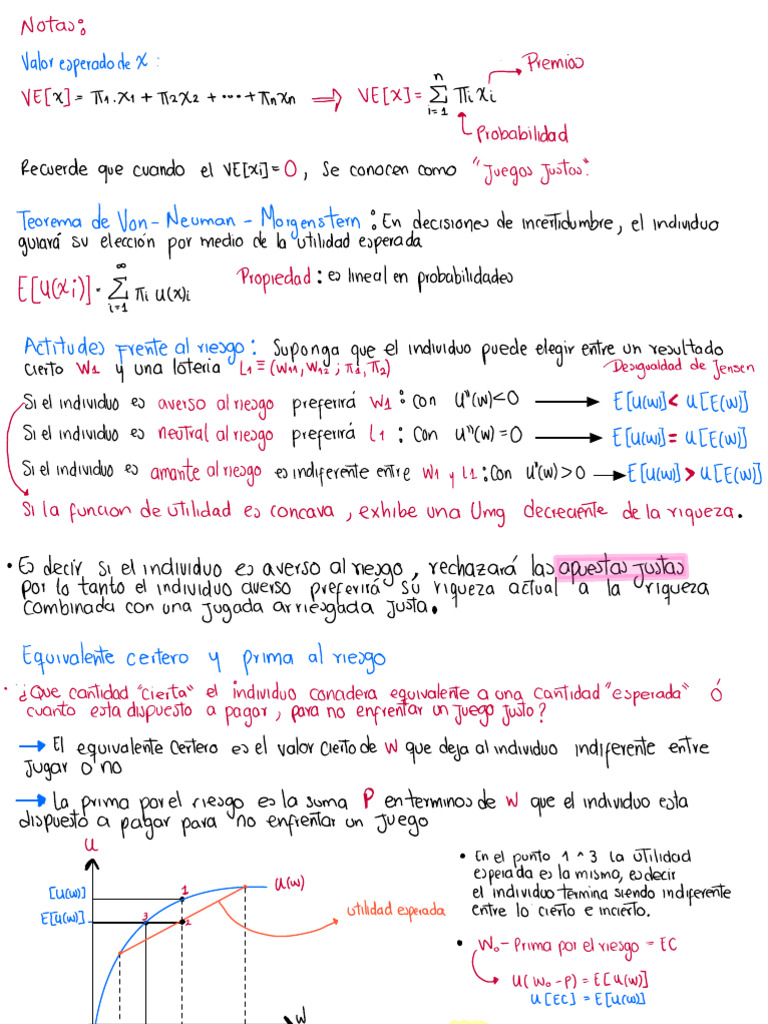 Notas:
Valor esperado de x:
VE[x] = π1.x1 + π2x2 + ... + πnxn ⟹ VE[x] = n Σ i=1 πi xi
Premios
Probabilidad
Recuerde que cuando el VE[xi]=0, se conocen como "Juegos Justos".
Teorema de Von-Neuman-Morgenstern: En decisiones de incertidumbre, el individuo
guiará su elección por medio de la utilidad esperada
E[U(xi)] = ∞ Σ i=1 πi u(x)i
Propiedad: es lineal en probabilidades
Actitudes frente al riesgo: Suponga que el individuo puede elegir entre un resultado
cierto W1 y una loteria L1 ≡ (W11, W12 ; π1, π2)
Desigualdad de Jensen
Si el individuo es averso al riesgo preferirá W1: con U"(w)<0 → E[U(w)] < U[E(w)]
Si el individuo es neutral al riesgo preferirá L1: Con U"(w)=0 → E[U(w)] = U[E(w)]
Si el individuo es amante al riesgo es indiferente entre W1 y L1: Con U"(w)>0 → E[U(w)] > U[E(w)]
Si la funcion de utilidad es concava, exhibe una Umg decreciente de la riqueza.
• Es decir si el individuo es averso al riesgo, rechazará las apuestas justas
por lo tanto el individuo averso preferirá su riqueza actual a la riqueza
combinada con una jugada arriesgada justa.
Equivalente certero y prima al riesgo
• ¿Que cantidad "cierta" el individuo considera equivalente a una cantidad "esperada" ó
cuanto esta dispuesto a pagar, para no enfrentar un juego justo?
→ El equivalente certero es el valor cierto de W que deja al individuo indiferente entre
jugar o no
→ La prima por el riesgo es la suma P en terminos de W que el individuo esta
dispuesto a pagar para no enfrentar un juego
U
[U(w)]
E[U(w)]
1
2
3
U(w)
utilidad esperada
W
• En el punto 1 ^ 3 la utilidad
esperada es la mismo, es decir
el individuo termina siendo indiferente
entre lo cierto e incierto.
• W0 - Prima por el riesgo = EC
U(W0-P) = E[U(w)]
U[EC] = E[U(w)]